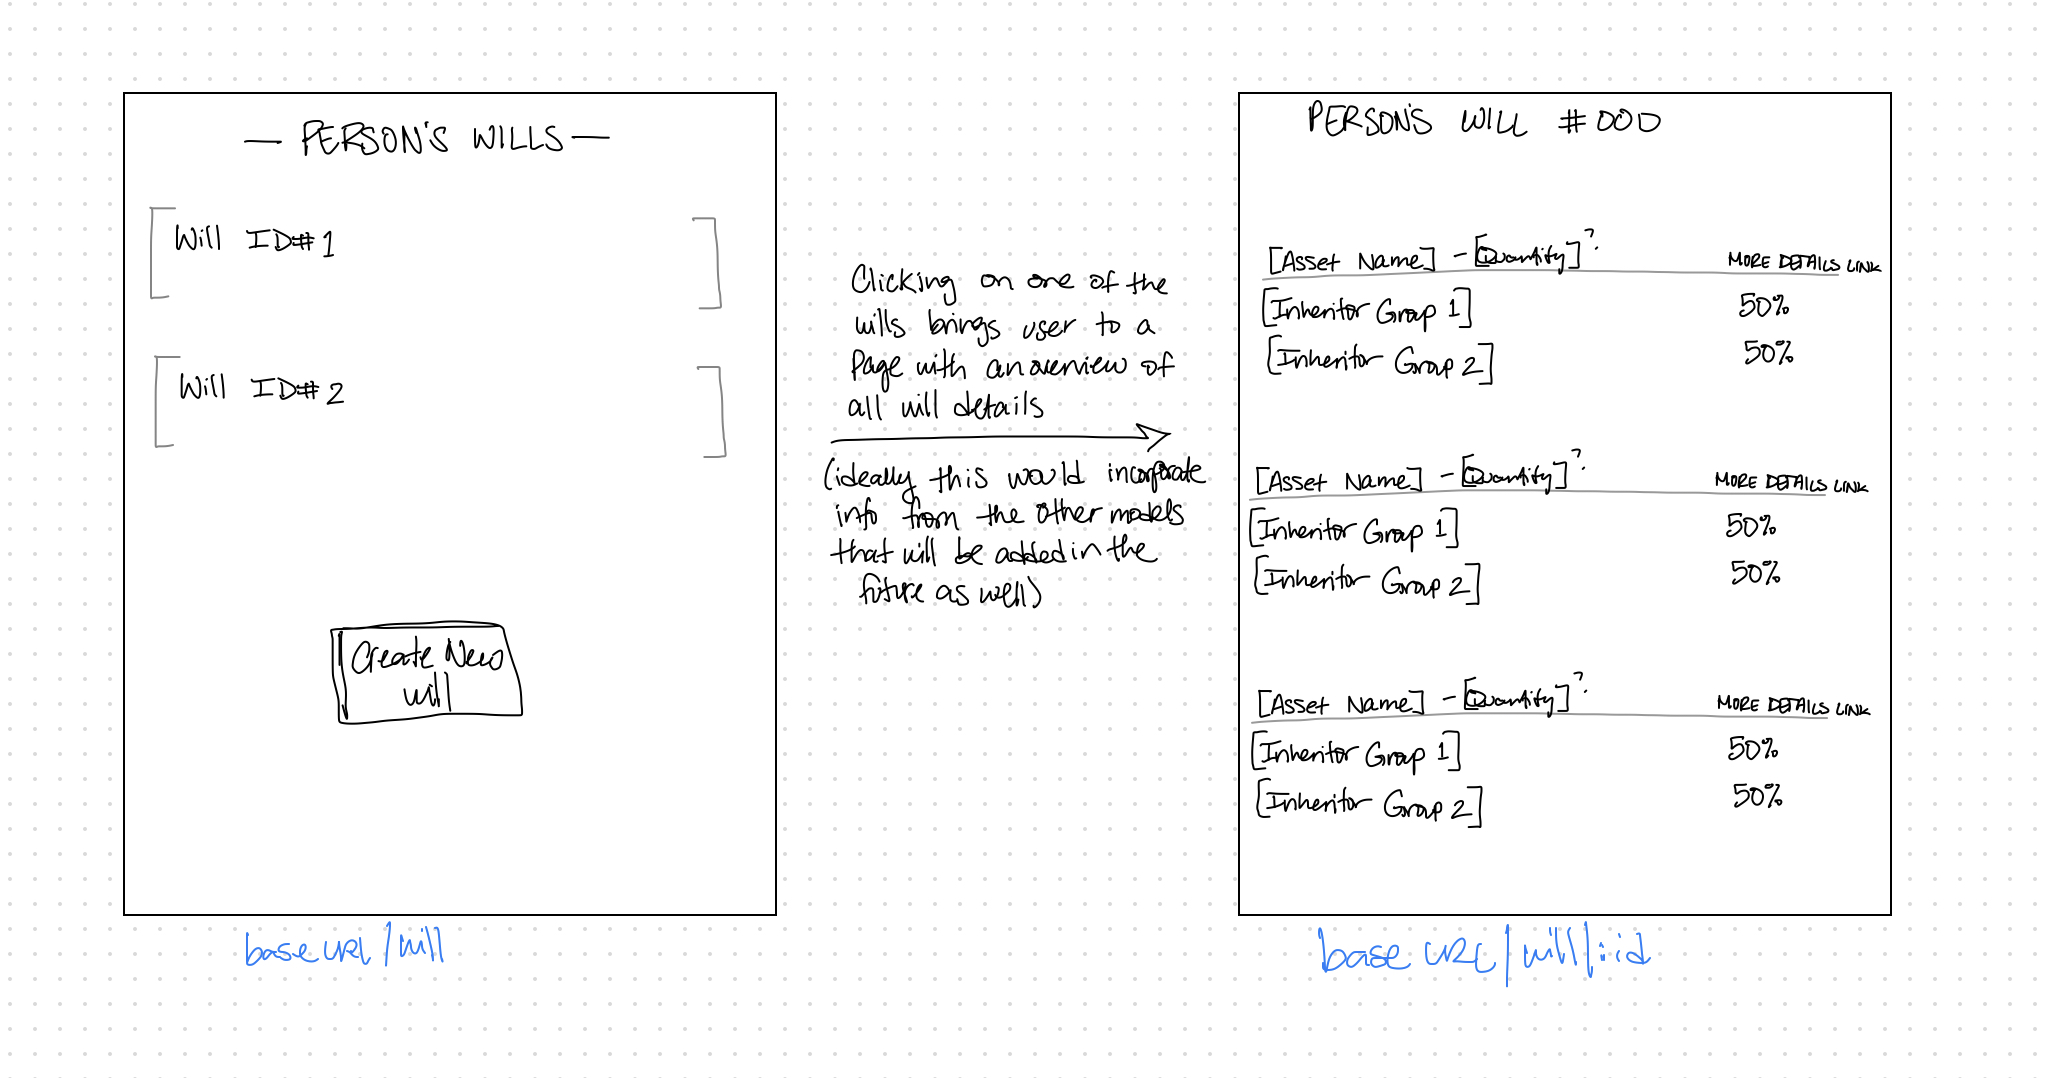 — PERSON'S WILLS —
Will ID#1
Will ID#2
Create New
will
base URL/will
Clicking on one of the
wills brings user to a
Page with an overview of
all will details
(ideally this would incorporate
info from the other models
that will be added in the
future as well)
PERSON'S WILL #000
[Asset Name] - [Quantity]? MORE DETAILS LINK
[Inheritor Group 1] 50%
[Inheritor Group 2] 50%
[Asset Name] - [Quantity]? MORE DETAILS LINK
[Inheritor Group 1] 50%
[Inheritor Group 2] 50%
[Asset Name] - [Quantity]? MORE DETAILS LINK
[Inheritor Group 1] 50%
[Inheritor Group 2] 50%
base URL/will/:id